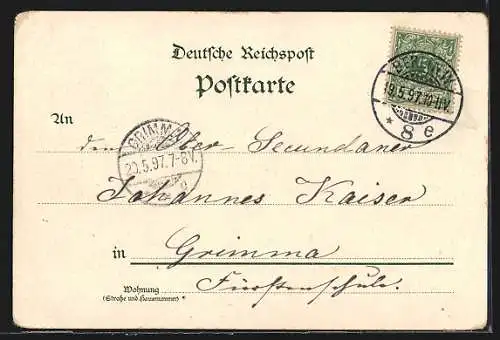 Deutsche Reichspost
Postkarte
An
dem Ober-Secundaner
Johannes Kaiser
in Grimma
Fürstenschule.
Wohnung
(Straße und Hausnummer)
GRIMMA
20.5.97.7-8V.
19.5.97.10-11V.
* 8 e